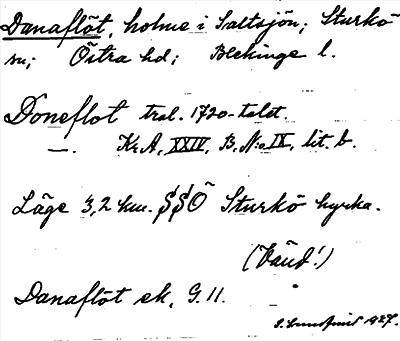 Danaflöt, holme i Saltsjön; Sturkö
sn; Östra hd; Blekinge l.
Doneflot trol. 1720-talet.
—. Kr.A, XXIV, B. N:o IX, lit. b.
Läge 3,2 km. SSÖ Sturkö kyrka.
(Vänd!)
Danaflöt ek. G. 11.
1927.